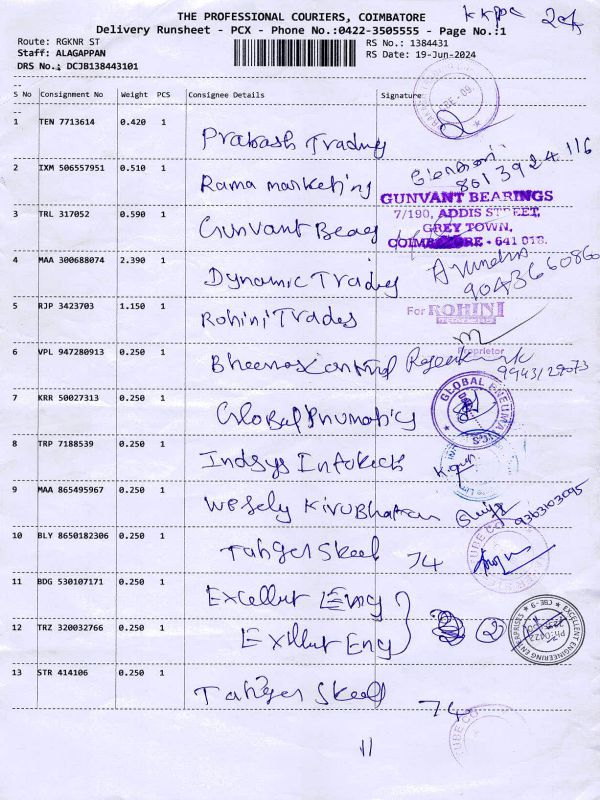 THE PROFESSIONAL COURIERS, COIMBATORE
Delivery Runsheet - PCX - Phone No.:0422-3505555 - Page No.:1
Route: RGKNR ST
Staff: ALAGAPPAN
DRS No.: DCJB138443101
RS No.: 1384431
RS Date: 19-Jun-2024
S No Consignment No Weight PCS Consignee Details Signature
1 TEN 7713614 0.420 1 Prakash Trading
2 IXM 506557951 0.510 1 Rama marketing
8013924116
3 TRL 317052 0.590 1 Gunvant Bearg
GUNVANT BEARINGS
7/190, ADDIS STREET,
GREY TOWN,
COIMBATORE - 641 018.
4 MAA 300688074 2.390 1 Dynamic Trading
9043666086
5 RJP 3423703 1.150 1 Rohini Trades
For ROHINI
Proprietor
6 VPL 947280913 0.250 1
7 KRR 50027313 0.250 1 Global Pnumatics
GLOBAL PNEUMATICS
8 TRP 7188539 0.250 1 Indsys Infotech
9 MAA 865495967 0.250 1 Wesely Kirubhakan
9363103095
10 BLY 8650182306 0.250 1 Tanger Skeel 74
TUBE CO
11 BDG 530107171 0.250 1 Excellent Eng
12 TRZ 320032766 0.250 1 Exllut Eng 2
EXCELLENT ENGINEERING ENTERPRISES CBE-9
Ph:0422
13 STR 414106 0.250 1 Tanger Skeel 74
TUBE CO
11